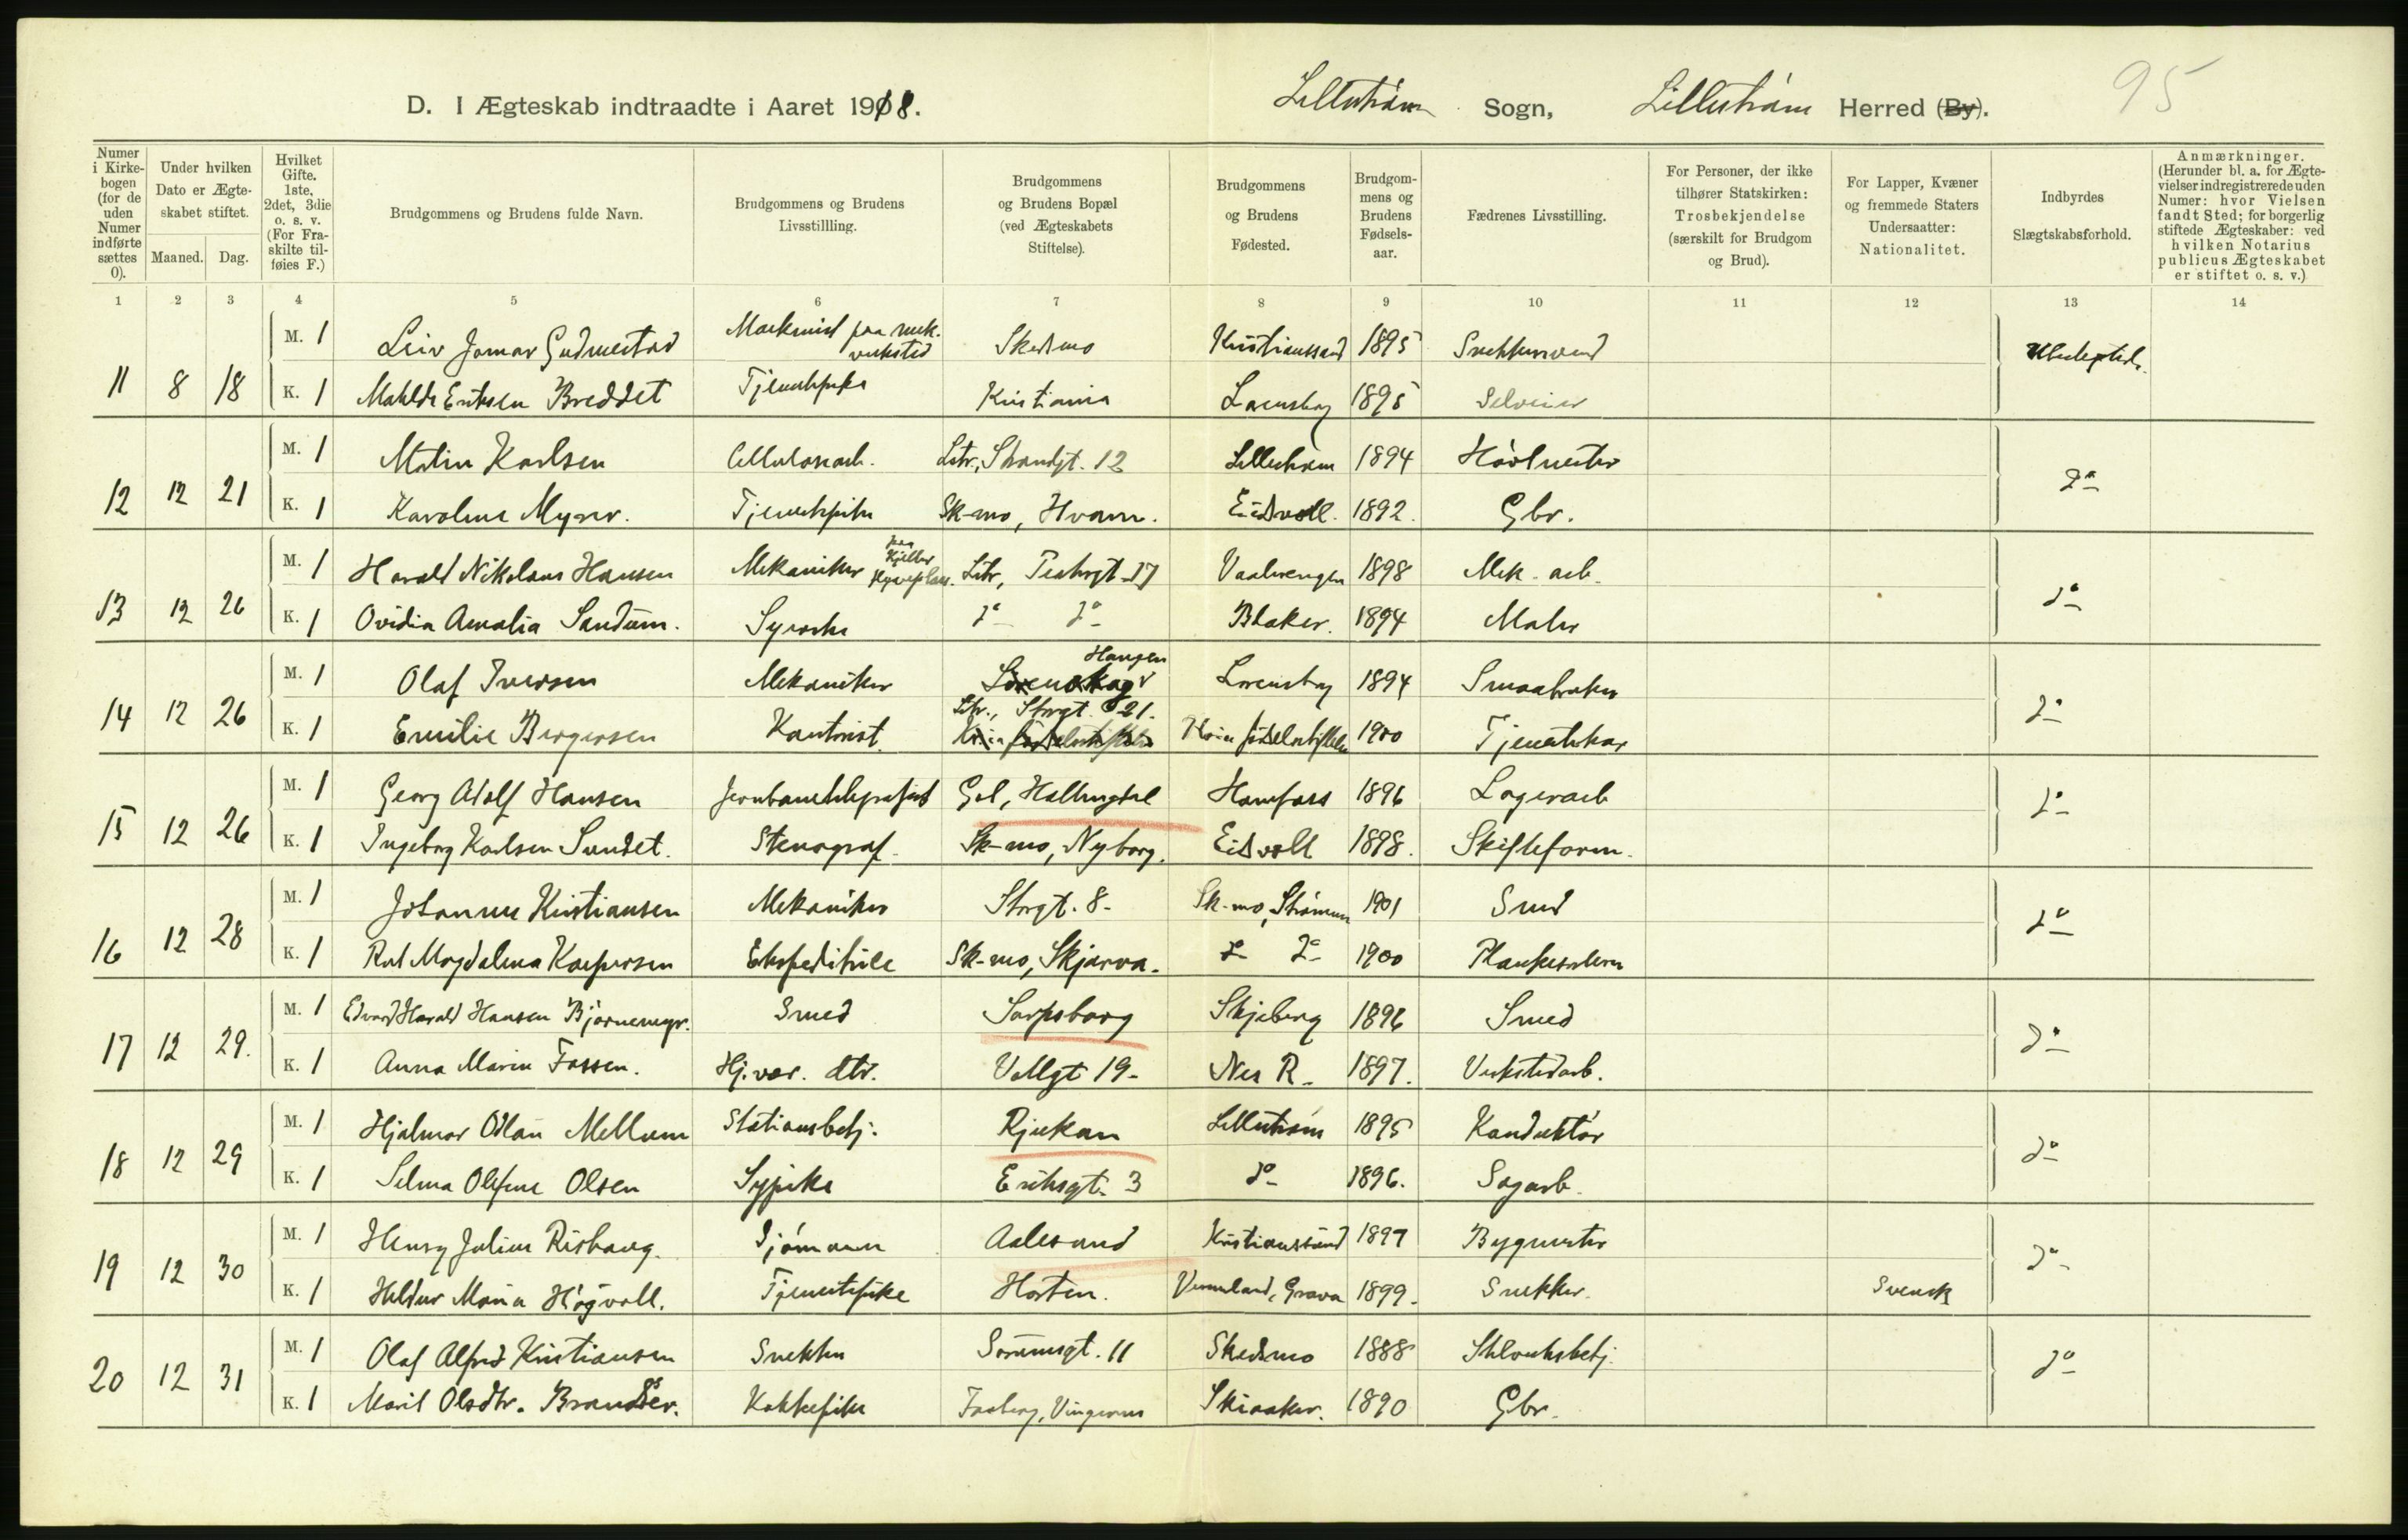 95
D. I Ægteskab indtraadte i Aaret 1918. Lillestrøm Sogn, Lillestrøm Herred (By).
Numer i Kirkebogen (for de uden Numer indførte sættes 0).
Under hvilken Dato er Ægteskabet stiftet.
Maaned. Dag.
Hvilket Gifte. 1ste, 2det, 3die o. s. v. (For Fraskilte tilføies F.)
Brudgommens og Brudens fulde Navn.
Brudgommens og Brudens Livsstillling.
Brudgommens og Brudens Bopæl (ved Ægteskabets Stiftelse).
Brudgommens og Brudens Fødested.
Brudgommens og Brudens Fødselsaar.
Fædrenes Livsstilling.
For Personer, der ikke tilhører Statskirken: Trosbekjendelse (særskilt for Brudgom og Brud).
For Lapper, Kvæner og fremmede Staters Undersaatter: Nationalitet.
Indbyrdes Slægtskabsforhold.
Anmærkninger. (Herunder bl. a. for Ægtevielser indregistrerede uden Numer: hvor Vielsen fandt Sted; for borgerlig stiftede Ægteskaber: ved hvilken Notarius publicus Ægteskabet er stiftet o. s. v.)
1 2 3 4 5 6 7 8 9 10 11 12 13 14
M. 1 Leiv Jomar Gudmestad paa mek. verksted Skedsmo Kristianssand 1895
11 8 18 K. 1 Eriksen Breddet Tjenestepike Kristiania Lørenskog 1895 Selveier
M. 1 Martin Karlsen Cellulosearb. Lstr., Strandgt. 12 Lillestrøm 1894 Høvlmester
12 12 21 K. 1 Karoline Myrer. Tjenestepike Sk-mo, Hvam. Eidsvoll. 1892. Gbr. do
M. 1 Harald Nikolaus Hansen Mekaniker paa Kjeller Lstr, 17 Vaalerengen 1898 Mek. arb.
13 12 26 K. 1 Ovidia Amalia Sandum. Syerske do do Blaker. 1894 Maler do
M. 1 Olaf Iversen Mekaniker Lørenskog Lørenskog 1894 Smaabruker
14 12 26 K. 1 Emilie Bergersen Kontorist. Lstr., Storgt. 21. Kr.ia fødselsstiftelse Kr.ia fødselsstiftelse 1900 do
M. 1 Georg Adolf Hansen Jernbanetelegrafist Gol, Hallingdal Hønefoss 1896 Lagerarb
15 12 26 K. 1 Ingeborg Karlsen Sundet. Stenograf. Sk-mo, Nyborg. Eidsvoll 1898. Skifteform. do
M. 1 Johannes Kristiansen Mekaniker Storgt. 8. Sk-mo, Strømmen 1901 Smed
16 12 28 K. 1 Rut Magdalena Kaspersen Ekspeditrice Sk-mo, Skjærva. do do 1900 do
M. 1 Edvard Harald Hansen Bjørnemyr. Smed Sarpsborg Skjeberg 1896 Smed
17 12 29. K. 1 Anna Marie Fossen. Hj. vær. dtr. Vollgt 19. Nes R. 1897. Verkstedarb. do
M. 1 Hjalmar Odlau Mellum Stationsbetj. Rjukan Lillestrøm 1895 Konduktør
18 12 29 K. 1 Selma Olefine Olsen Sypike Eriksgt. 3 do 1896. Sagarb. do
M. 1 Henry Julius Rishaug. Sjømann Aalesund Kristianssund 1897 Bygmester
19 12 30 K. 1 Maria Høgvall. Tjenestepike Horten. Vermland, Grava 1899. Snekker. Svensk do
M. 1 Olaf Alfred Kristiansen Snekker Sørumsgt. 11 Skedsmo 1888
20 12 31 K. 1 Marit Olsdtr. Kokkepike Faaberg, Vingerom Skiaaker. 1890 Gbr. do